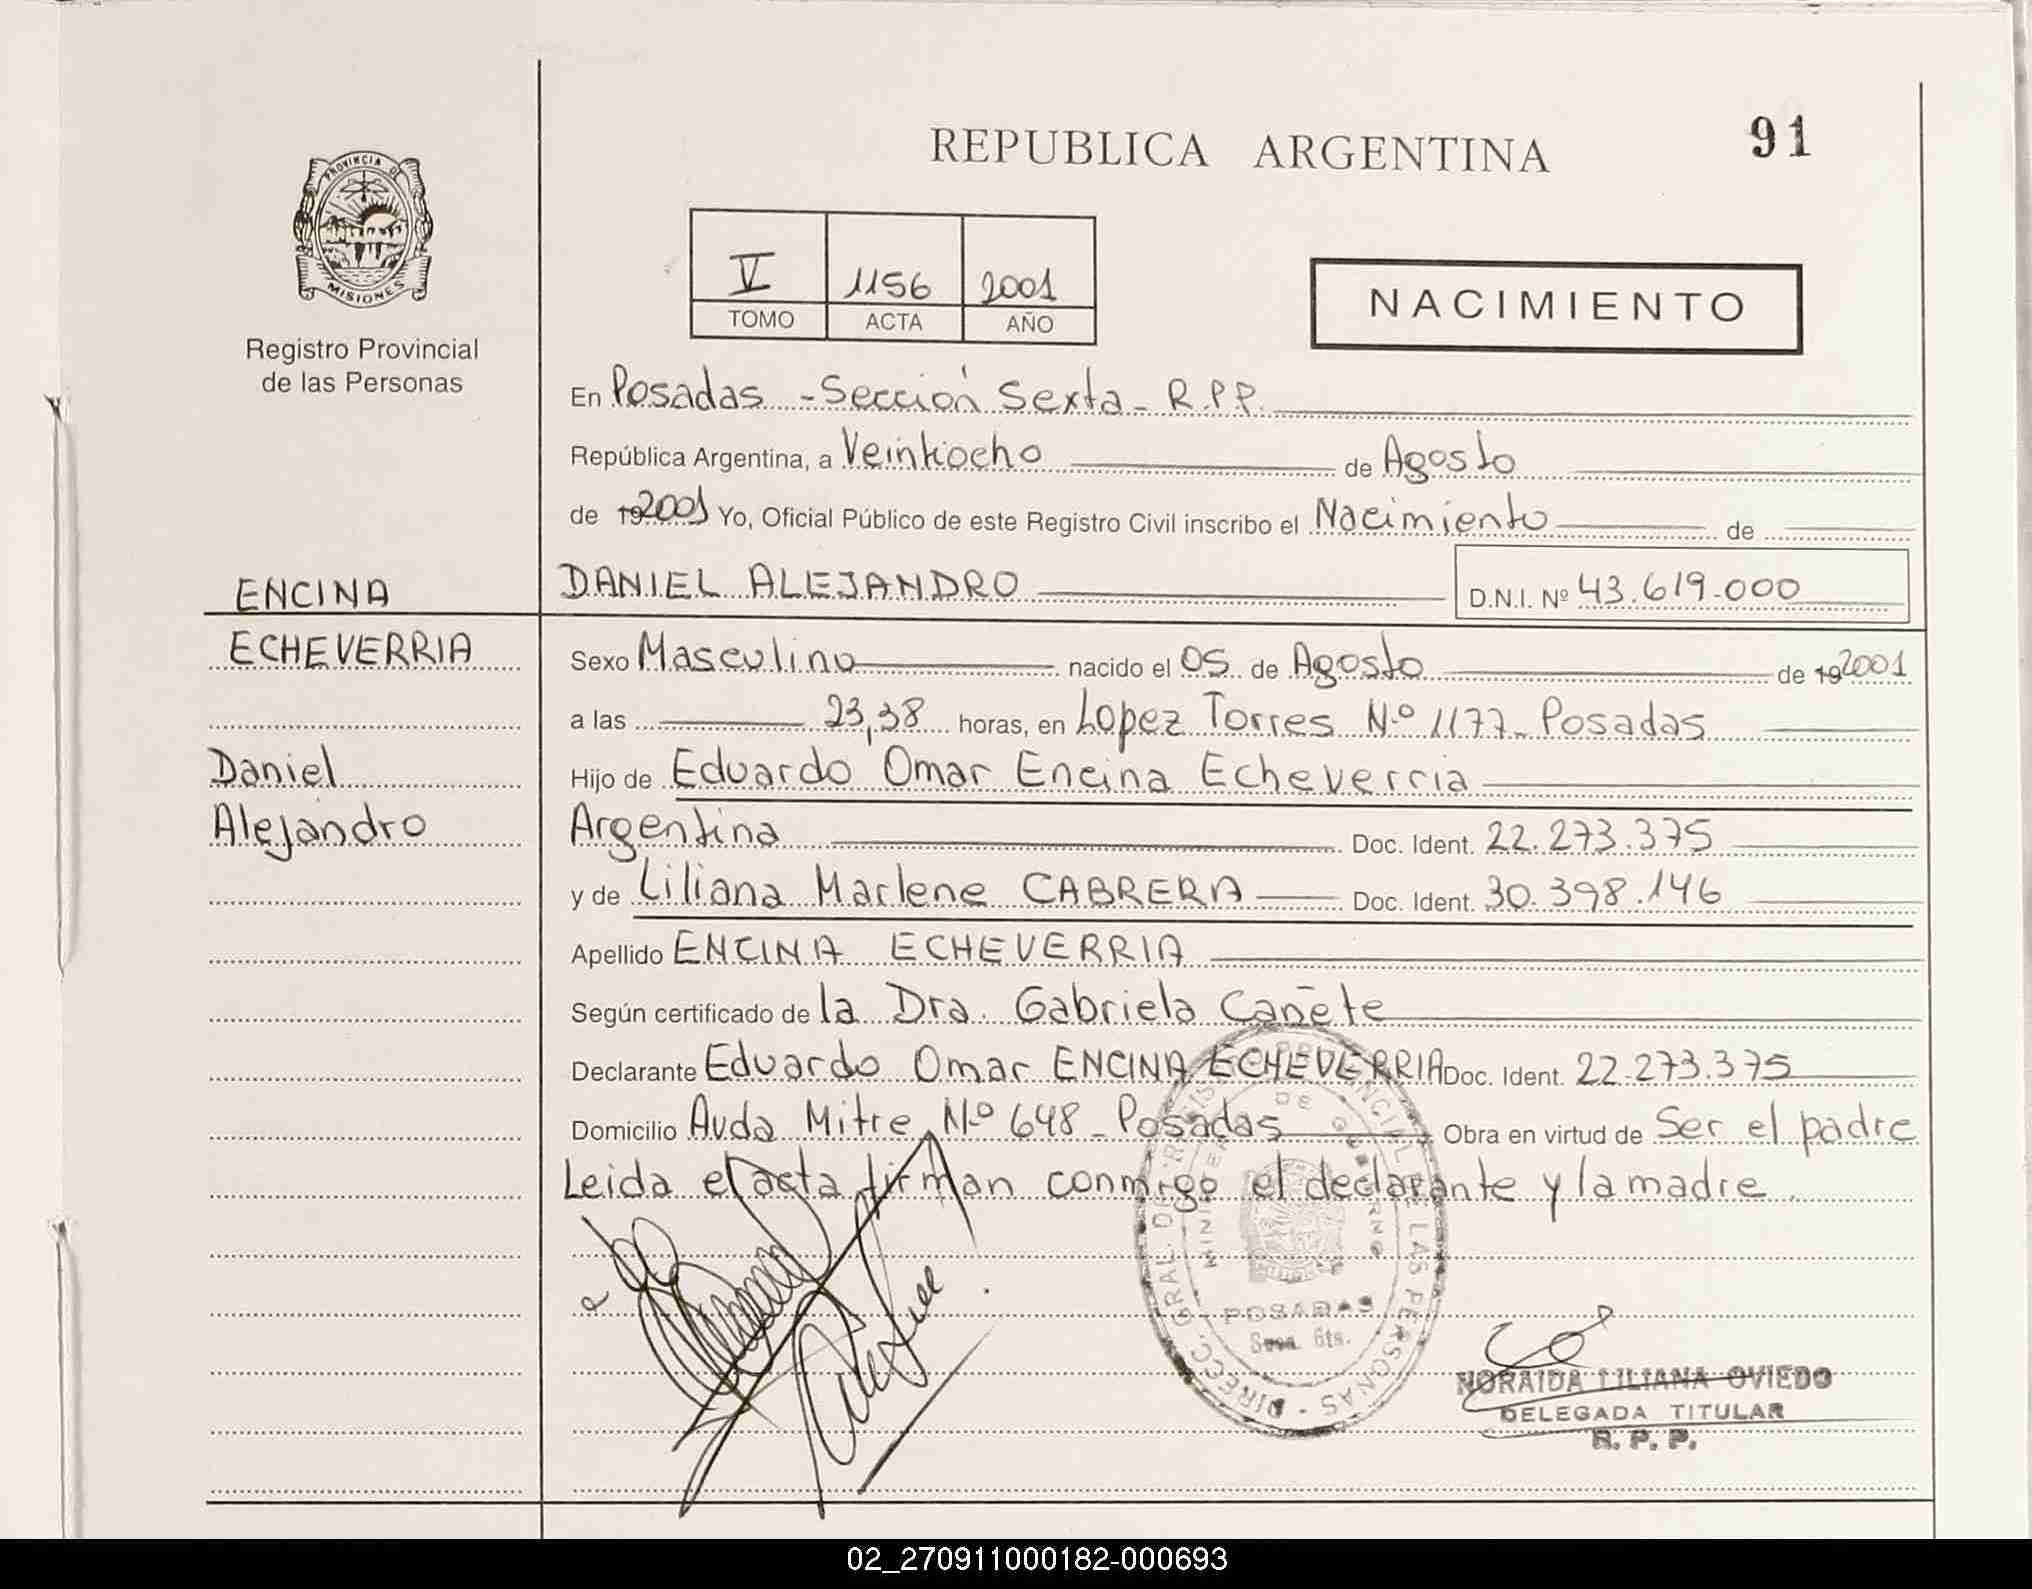 REPUBLICA ARGENTINA
91
PROVINCIA DE
MISIONES
Registro Provincial
de las Personas
V 1156 2001
TOMO ACTA AÑO
NACIMIENTO
En Posadas - Sección Sexta - R.P.P.
República Argentina, a Veintiocho de Agosto
de 192001 Yo, Oficial Público de este Registro Civil inscribo el Nacimiento de
ENCINA
DANIEL ALEJANDRO D.N.I. Nº 43.619.000
ECHEVERRIA
Sexo Masculino nacido el 05 de Agosto de 192001
a las 23,38 horas, en Lopez Torres Nº 1177 - Posadas
Daniel
Hijo de Eduardo Omar Encina Echeverria
Alejandro
Argentina Doc. Ident. 22.273.375
y de Liliana Marlene CABRERA Doc. Ident. 30.398.146
Apellido ENCINA ECHEVERRIA
Según certificado de la Dra. Gabriela Cañete
Declarante Eduardo Omar ENCINA ECHEVERRIA Doc. Ident. 22.273.375
Domicilio Avda Mitre Nº 648 - Posadas Obra en virtud de Ser el padre
Leida el acta firman conmigo el declarante y la madre.
DIRECC. GRAL. DE REGISTRO PROVINCIAL DE LAS PERSONAS
MINISTERIO DE GOBIERNO
POSADAS
6ta.
NORAIDA LILIANA OVIEDO
DELEGADA TITULAR
R. P. P.
02_270911000182-000693